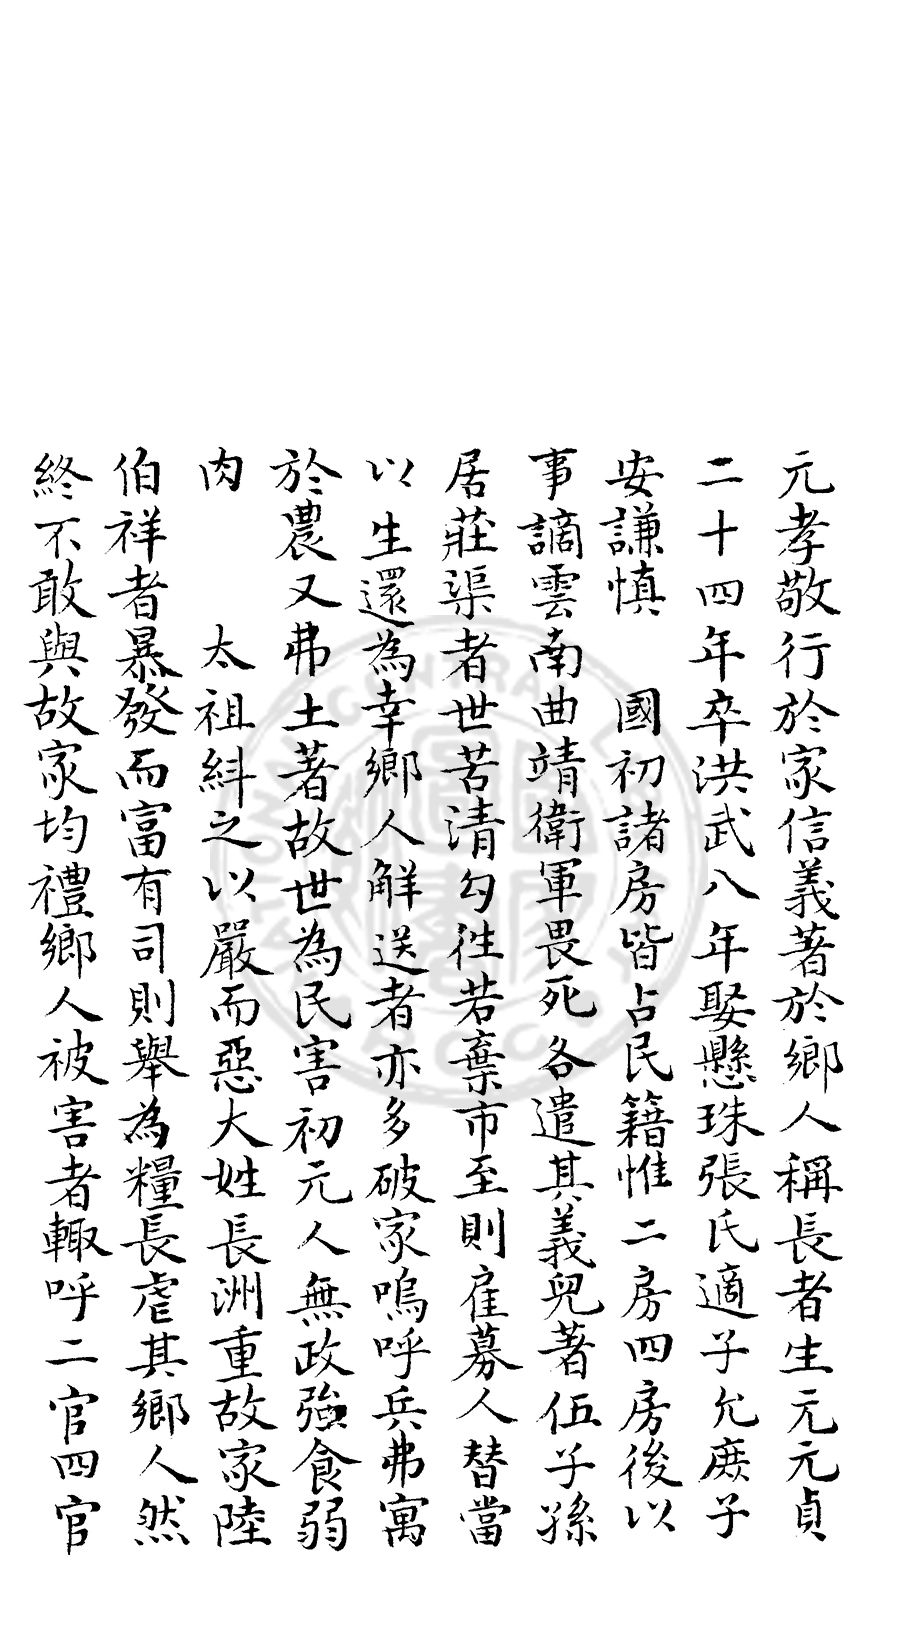 元孝敬行於家信義著於鄉人稱長者生元元貞
二十四年卒洪武八年娶懸珠張氏適子允庶子
安謙慎　國初諸房皆占民籍惟二房四房後以
事謫雲南曲靖衛軍畏死各遣其義兒著伍子孫
居莊渠者世苦清勾徃若棄市至則雇募人替當
以生還為幸鄉人解送者亦多破家嗚呼兵弗寓
於農又弗土著故世為民害初元人無政強食弱
肉　太祖糾之以嚴而惡大姓長洲重故家陸
伯祥者暴發而富有司則舉為糧長虐其鄉人然
終不敢與故家均禮鄉人被害者輙呼二官四官